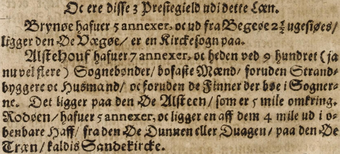 Oc ere disse 3 Prestegield udi dette Læn.
Brynøe hafuer 5 annexer, oc ud fra Begøe 2½ ugesiøes/
ligger den De Vægøe/ er en Kirckesogn paa.
Alstehouf hafuer 7 annexer, oc heden ved 9 hundret (ja
nu vel flere) Sognebønder, bofaste Mænd/ foruden Strand-
byggere oc Husmand/ oc foruden de Finner der boe i Sogner-
ne. Det ligger paa den De Alsteen/ som er 5 mile omkring.
Rodøen/ hafuer 5 annexer, oc ligger en aff dem 4 mile ud i o-
benbare Haff/ fra den De Dunnen eller Duagen/ paa den De
Træn/ kaldis Sandekircke.